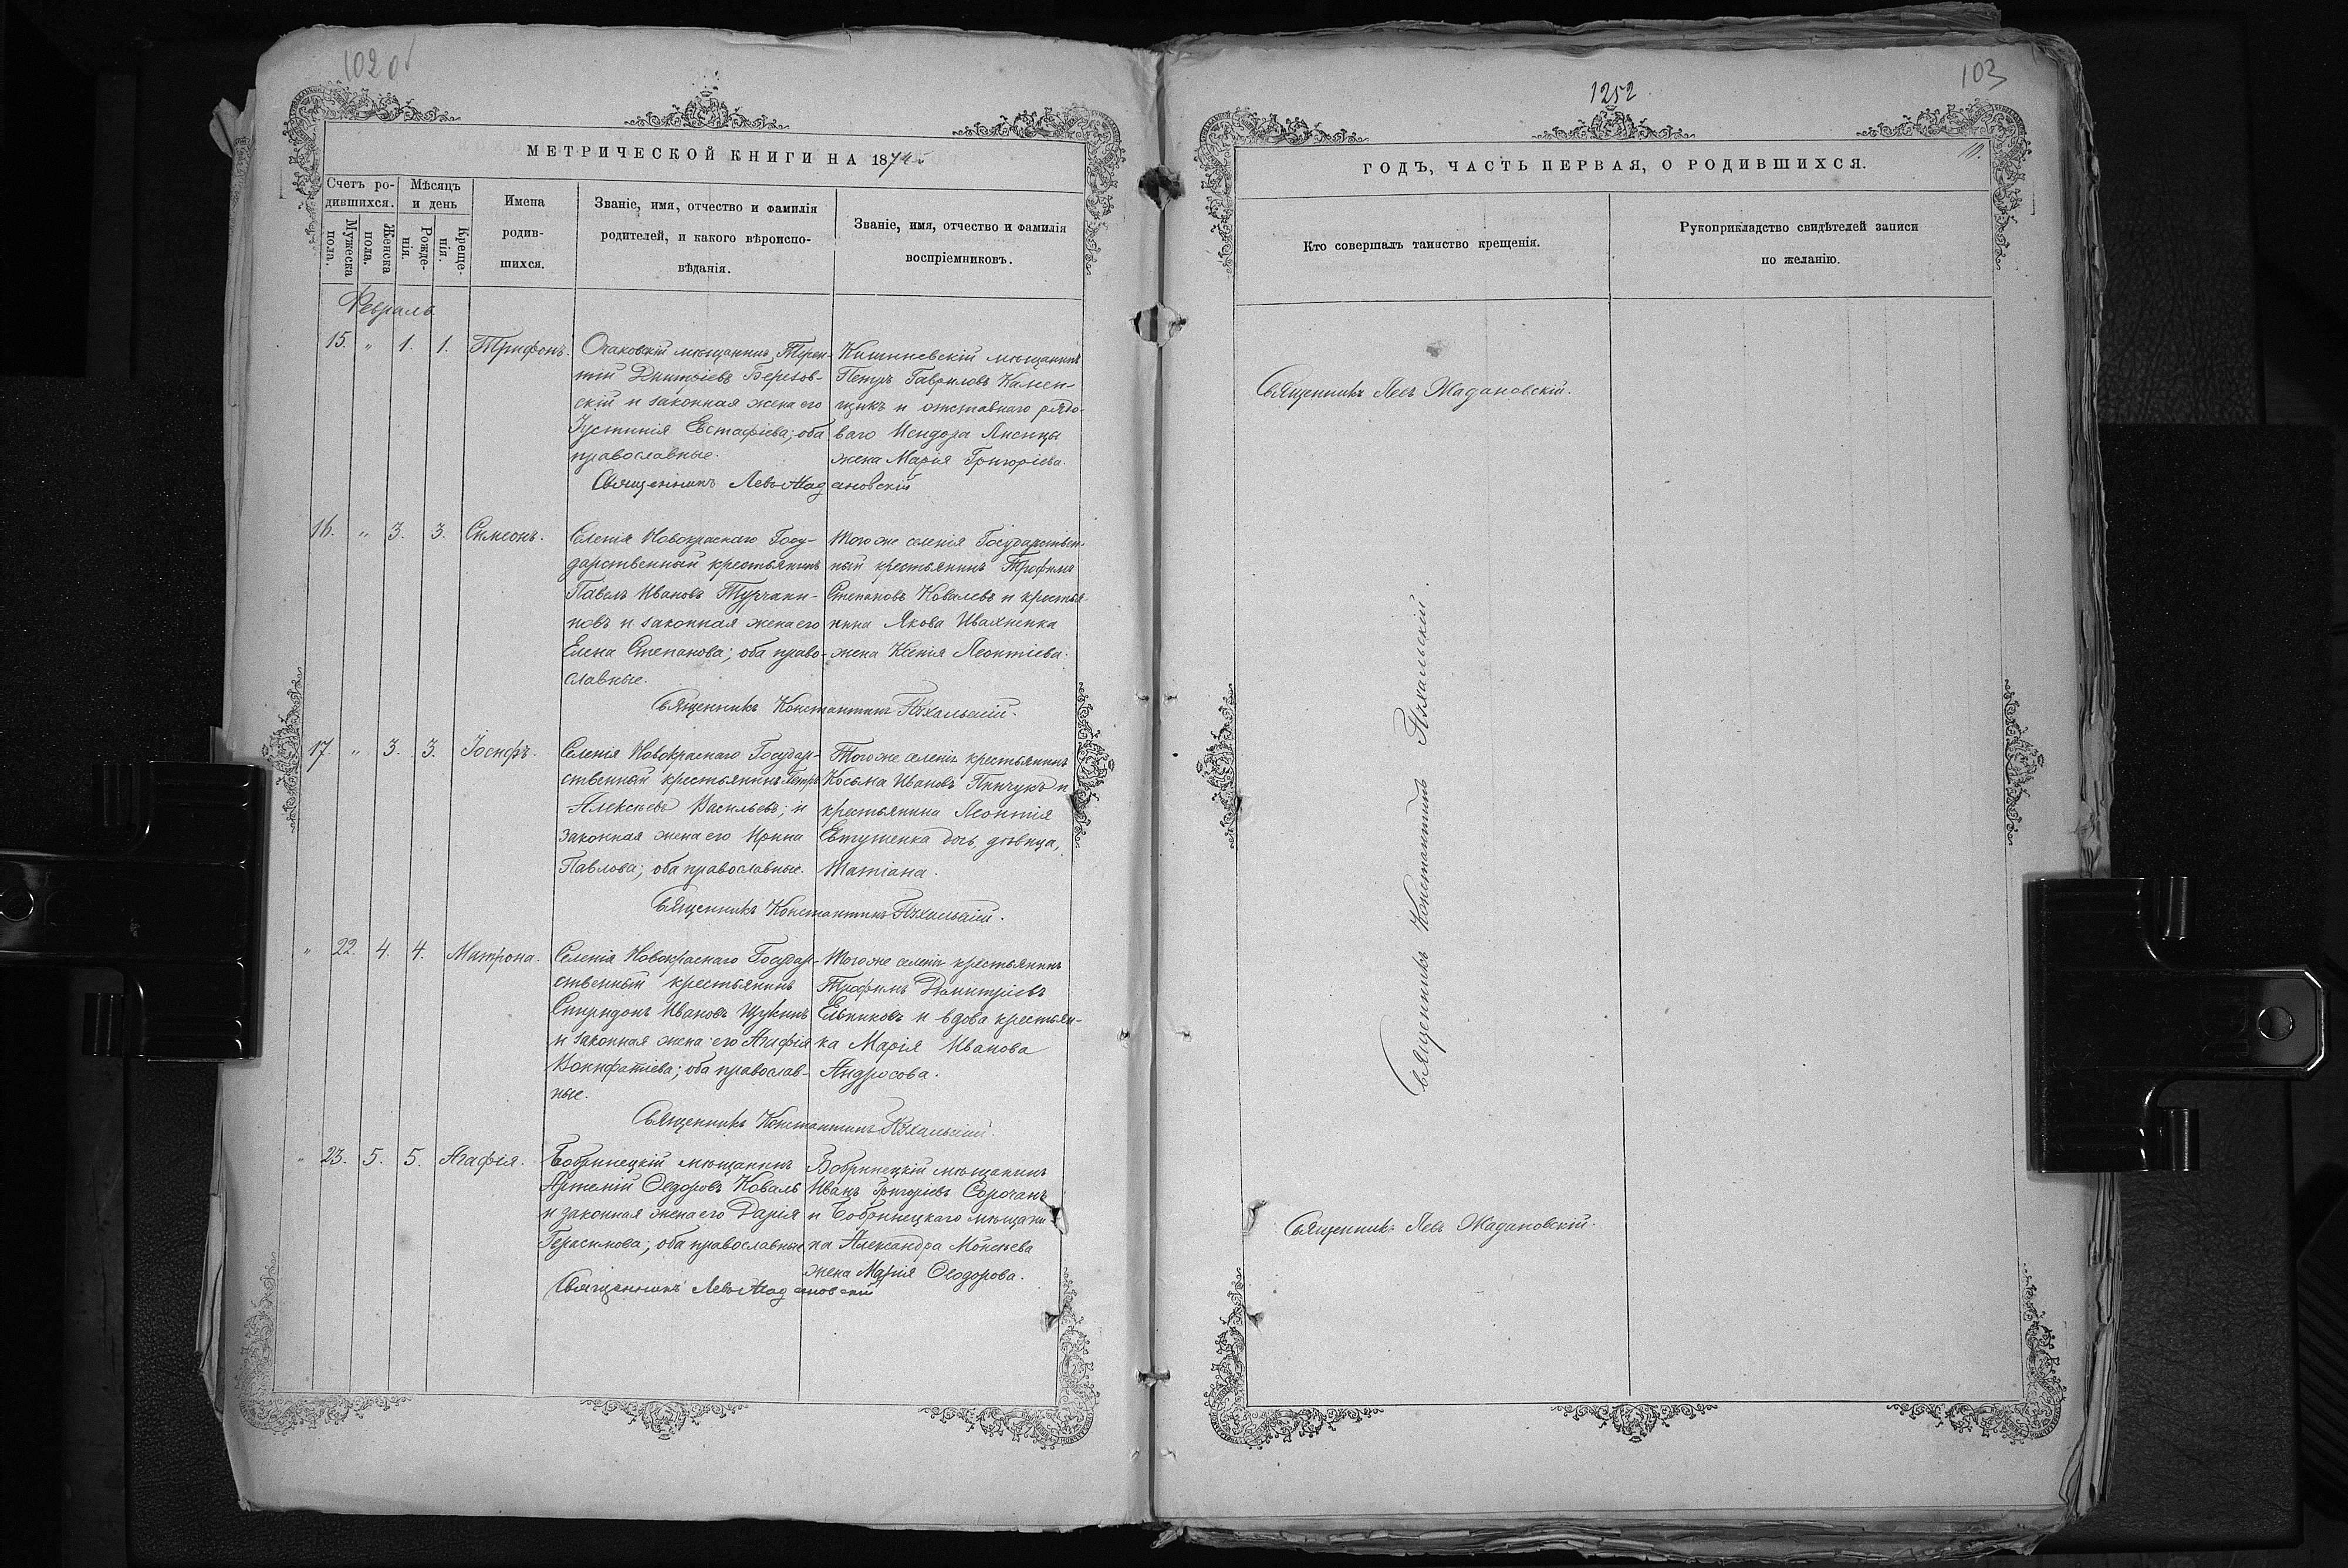 102 об
МЕТРИЧЕСКОЙ КНИГИ НА 1874
Счетъ ро-
дившихся.
Мужеска
пола.
Женска
пола.
Мѣсяцъ
и день
Рожде-
нія.
Креще-
нія.
Имена
родив-
шихся.
Званіе, имя, отчество и фамилія
родителей, и какого вѣроиспо-
вѣданія.
Званіе, имя, отчество и фамилія
воспріемниковъ.
Февраль
15. " 1. 1. Трифонъ.
Очаковскій мѣщанинъ Терен-
тій Дмитріевъ Березов-
скій и законная жена его
Іустинія Евстафіева; оба
православные.
Кишиневскій мѣщанинъ
Петръ Гавриловъ Камен-
щикъ и отставнаго рядо-
ваго Исидора Лисицы
жена Марія Григоріева.
Священникъ Левъ Жадановскій
16. " 3. 3. Симеонъ.
Селенія Новокраснаго Госу-
дарственный крестьянинъ
Павелъ Ивановъ Турчани-
новъ и законная жена его
Елена Степанова; оба право-
славные.
Того же селенія Государствен-
ный крестьянинъ Трофимъ
Степановъ Ковалевъ и крестья-
нина Якова Иваненка
жена Ксенія Леонтіева.
Священникъ Константинъ
17. " 3. 3. Іосифъ.
Селенія Новокраснаго Государ-
ственный крестьянинъ Петръ
Алексѣевъ Васильевъ; и
законная жена его Ирина
Павлова; оба православные.
Того же селенія крестьянинъ
Косьма Ивановъ Пинчукъ и
крестьянина Леонтія
Евтушенка дочь, дѣвица,
Татіана.
Священникъ Константинъ
" 22. 4. 4. Матрона.
Селенія Новокраснаго Государ-
ственный крестьянинъ
Спиридонъ Ивановъ Щукинъ
и законная жена его Агафія
Вонифатіева; оба православ-
ные.
Того же селенія крестьянинъ
Трофимъ Димитріевъ
Ельниковъ и вдова крестьян-
ка Марія Иванова
Андросова.
Священникъ Константинъ
" 23. 5. 5. Агафія.
Бобринецкій мѣщанинъ
Артемій Ѳедоровъ Коваль
и законная жена его Дарія
Герасимова; оба православные
Бобринецкій мѣщанинъ
Иванъ Григоріевъ Сорочанъ
и Бобринецкаго мѣщани-
на Александра Моисеева
жена Марія Ѳеодорова.
Священникъ Левъ Жадановскій
103
1252
10.
ГОДЪ, ЧАСТЬ ПЕРВАЯ, О РОДИВШИХСЯ.
Кто совершалъ таинство крещенія.
Рукоприкладство свидѣтелей записи
по желанію.
Священникъ Левъ Жадановскій.
Священникъ Константинъ
Священникъ Левъ Жадановскій.